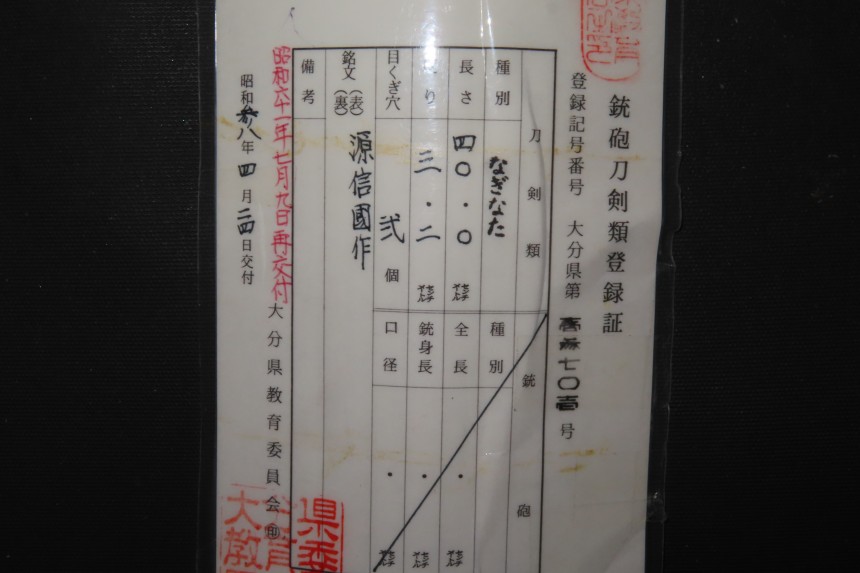 銃砲刀剣類登録証
登録記号番号 大分県第 壱参七〇壱 号
刀剣類
種別 なぎなた
長さ 四〇.〇 糎
そり 三.二 糎
目くぎ穴 弐 個
銘文 (表)(裏) 源信國作
備考
銃砲
種別
全長 . 糎
銃身長 . 糎
口径 . 糎
昭和六十一年七月九日再交付
大分県教育委員会 印
昭和 年 四 月 二四 日交付